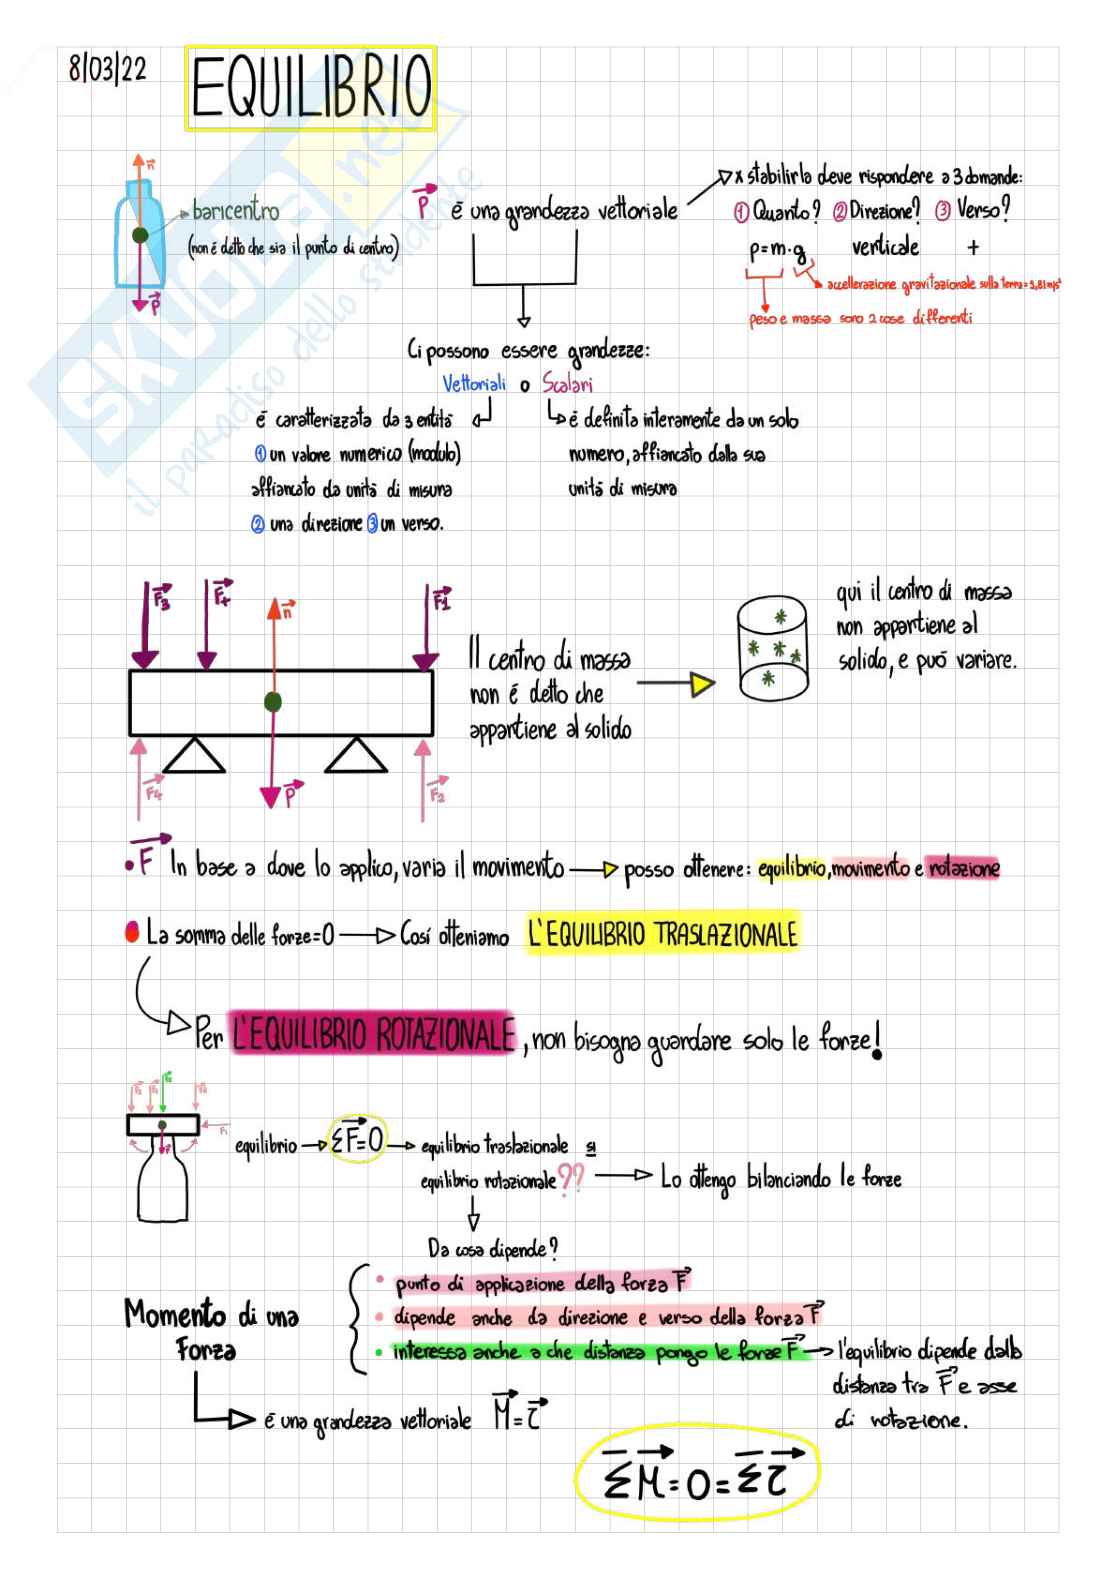 8/03/22
EQUILIBRIO
SKUOLA.net
il paradiso dello studente
n
baricentro
(non é detto che sia il punto di centro)
P
P é una grandezza vettoriale
x stabilirla deve rispondere a 3 domande:
① Quanto? ② Direzione? ③ Verso?
p=m·g verticale +
accellerazione gravitazionale sulla terra=9,81m/s²
peso e massa sono 2 cose differenti
Ci possono essere grandezze:
Vettoriali o Scalari
é caratterizzata da 3 entitá
① un valore numerico (modulo)
affiancato da unitá di misura
② una direzione ③ un verso.
é definita interamente da un solo
numero, affiancato dalla sua
unitá di misura
F3 F+ n F1
P F4 F2
Il centro di massa
non é detto che
appartiene al solido
qui il centro di massa
non appartiene al
solido, e puó variare.
• F In base a dove lo applico, varia il movimento posso ottenere: equilibrio, movimento e rotazione
• La somma delle forze=0 Cosí otteniamo L'EQUILIBRIO TRASLAZIONALE
Per L'EQUILIBRIO ROTAZIONALE, non bisogna guardare solo le forze!
F1
equilibrio ΣF=0 equilibrio traslazionale si
equilibrio rotazionale?? Lo ottengo bilanciando le forze
Da cosa dipende?
Momento di una
Forza
• punto di applicazione della forza F
• dipende anche da direzione e verso della forza F
• interessa anche a che distanza pongo le forze F
l'equilibrio dipende dalla
distanza tra F e asse
di rotazione.
é una grandezza vettoriale M=τ
ΣM=0=Στ